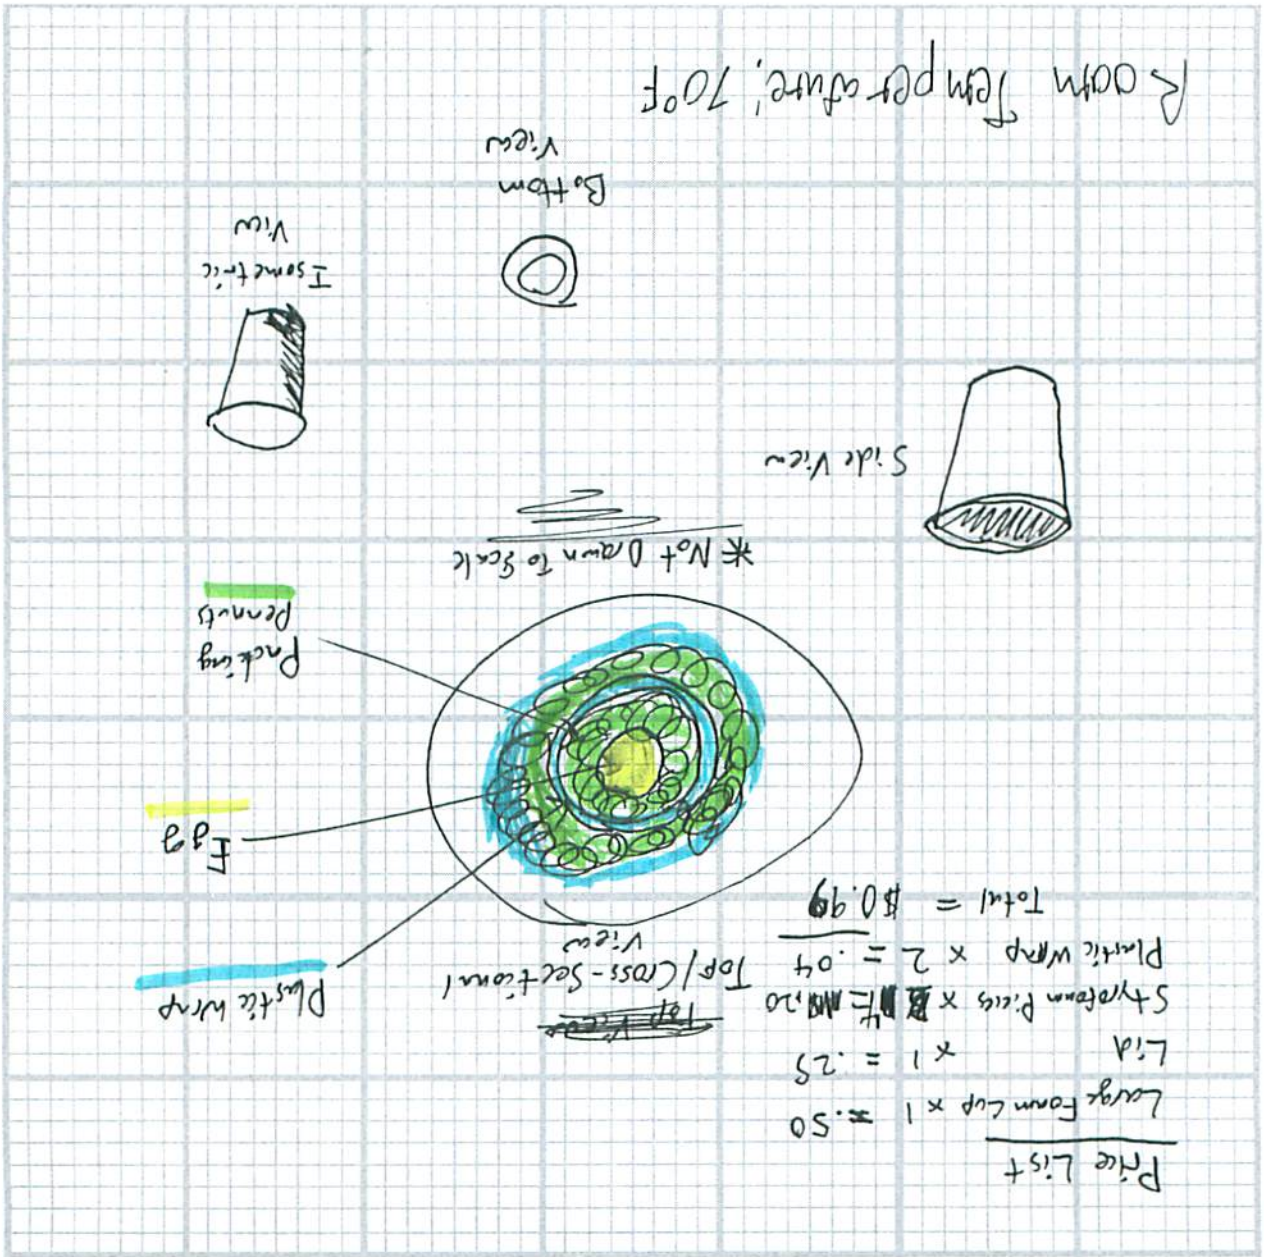 Price List
Large Foam Cup x 1 = .50
Lid x 1 = .25
Styrofoam Pieces x 4 = .20
Plastic Wrap x 2 = .04
Total = $0.99
Top View
Top/Cross-Sectional
View
Plastic Wrap
Egg
Packing
Peanuts
* Not Drawn To Scale
Side View
Isometric
View
Bottom
View
Room Temperature: 70°F